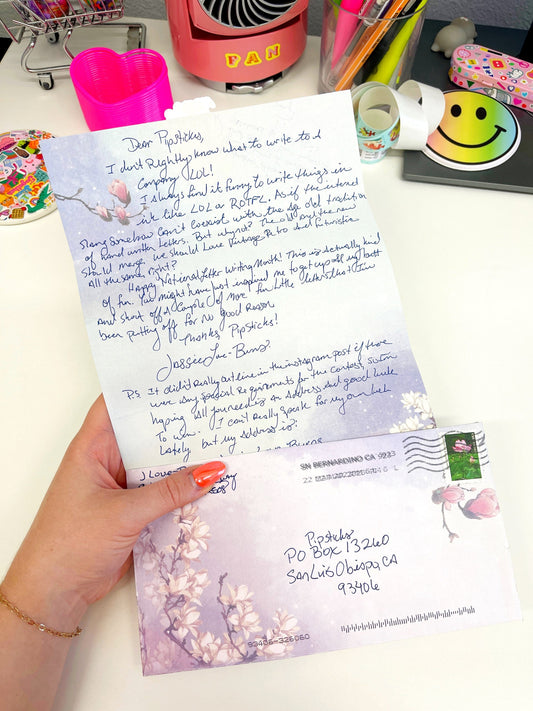 FAN
Dear Pipsticks,
I don't Rightly know what to write to a
Company LOL!
I always find it funny to write things in
ink like LOL or ROTFL. As if the internet
slang somehow can't coexist with the age old tradition
of hand written letters. But why not? The old and the new
should merge, we should Love Vintage Retro and Futuristic
All the same, right?
Happy National Letter Writing Month! This is actually kind
of fun. You might have just inspired me to get up off my butt
and short off a Couple of More for little letters that I've
been putting off for No good Reason.
Thanks, Pipsticks!
PS. It didn't Really outline in the instagram post if there
were any special Requirements for the contest, so I'm
hoping all you need is an Address and good luck
To win. I can't Really speak for my own luck
Lately but my Address is:
SN BERNARDINO CA 9923
Pipsticks
PO Box 13260
San Luis Obispo, CA
93406
93406-326060